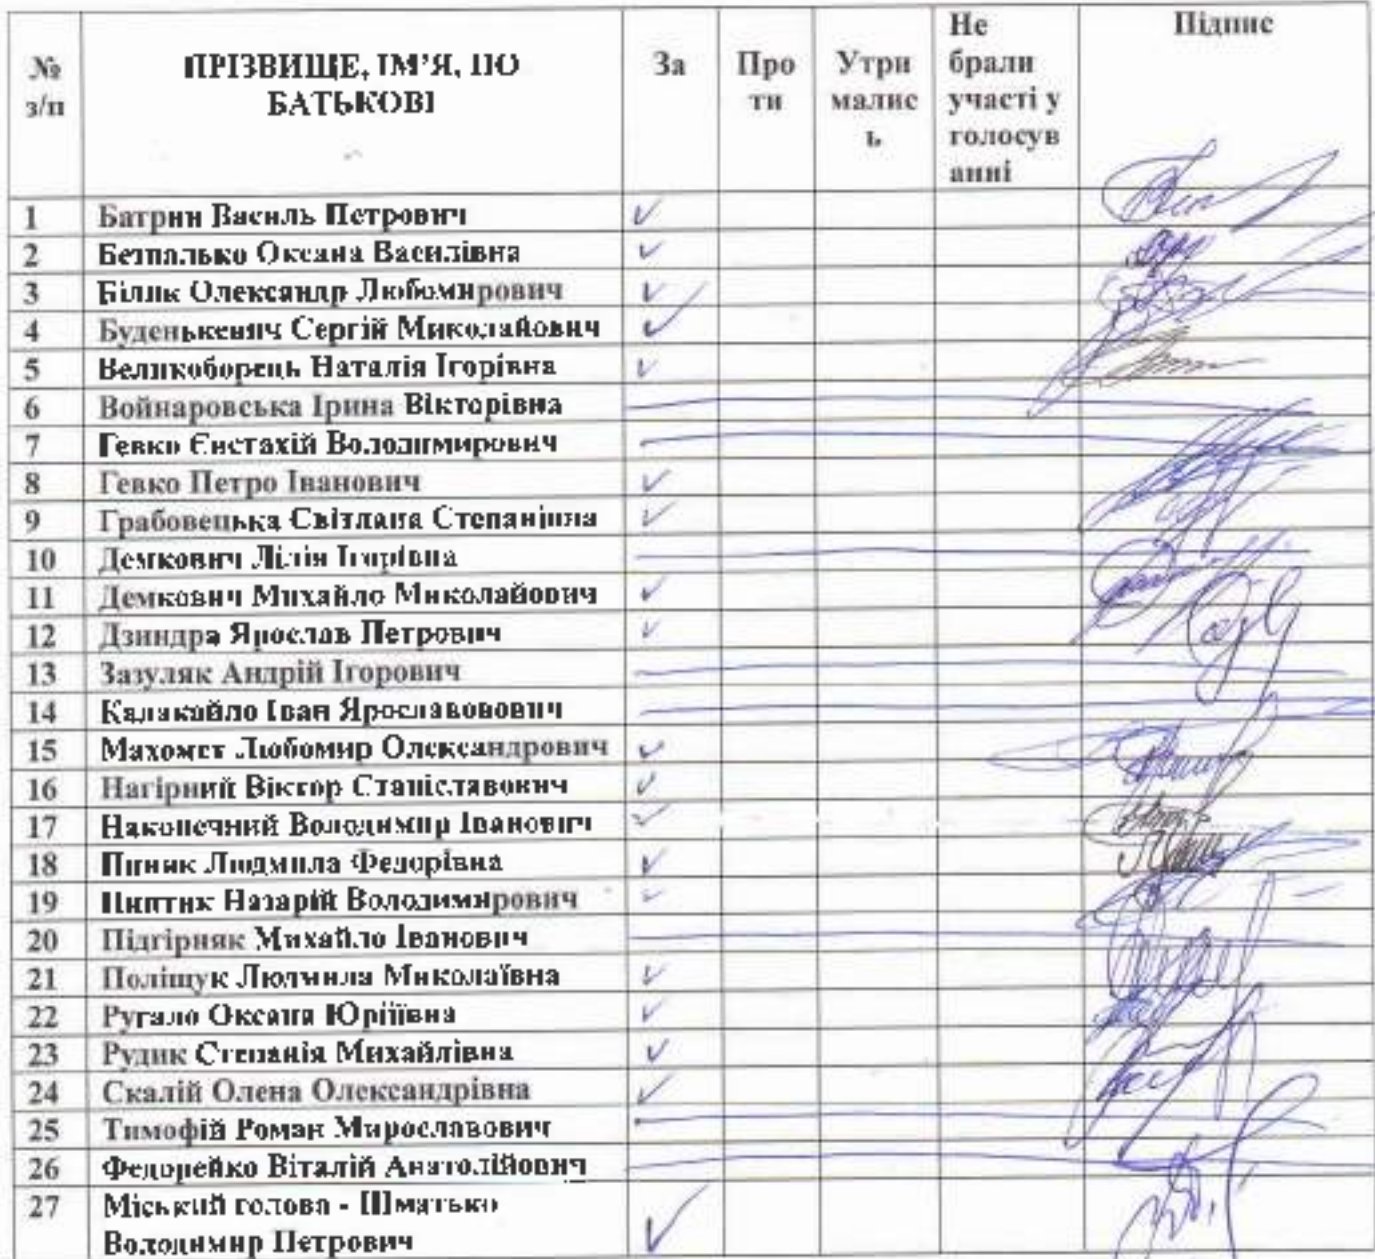 № з/п ПРІЗВИЩЕ, ІМ’Я, ПО БАТЬКОВІ За Про ти Утри малис ь Не брали участі у голосув анні Підпис
1 Батрин Василь Петрович
2 Безпалько Оксана Василівна
3 Білик Олександр Любомирович
4 Буденькевич Сергій Миколайович
5 Великоборець Наталія Ігорівна
6 Войнаровська Ірина Вікторівна
7 Гевко Євстахій Володимирович
8 Гевко Петро Іванович
9 Грабовецька Світлана Степанівна
10 Демкович Лілія Ігорівна
11 Демкович Михайло Миколайович
12 Дзиндра Ярослав Петрович
13 Зазуляк Андрій Ігорович
14 Калакайло Іван Ярославовович
15 Махомет Любомир Олександрович
16 Нагірний Віктор Станіславович
17 Наконечний Володимир Іванович
18 Людмила Федорівна
19 Назарій Володимирович
20 Підгірняк Михайло Іванович
21 Поліщук Людмила Миколаївна
22 Ругало Оксана Юріївна
23 Рудик Степанія Михайлівна
24 Скалій Олена Олександрівна
25 Тимофій Роман Мирославович
26 Федорейко Віталій Анатолійович
27 Міський голова - Шматько
Володимир Петрович